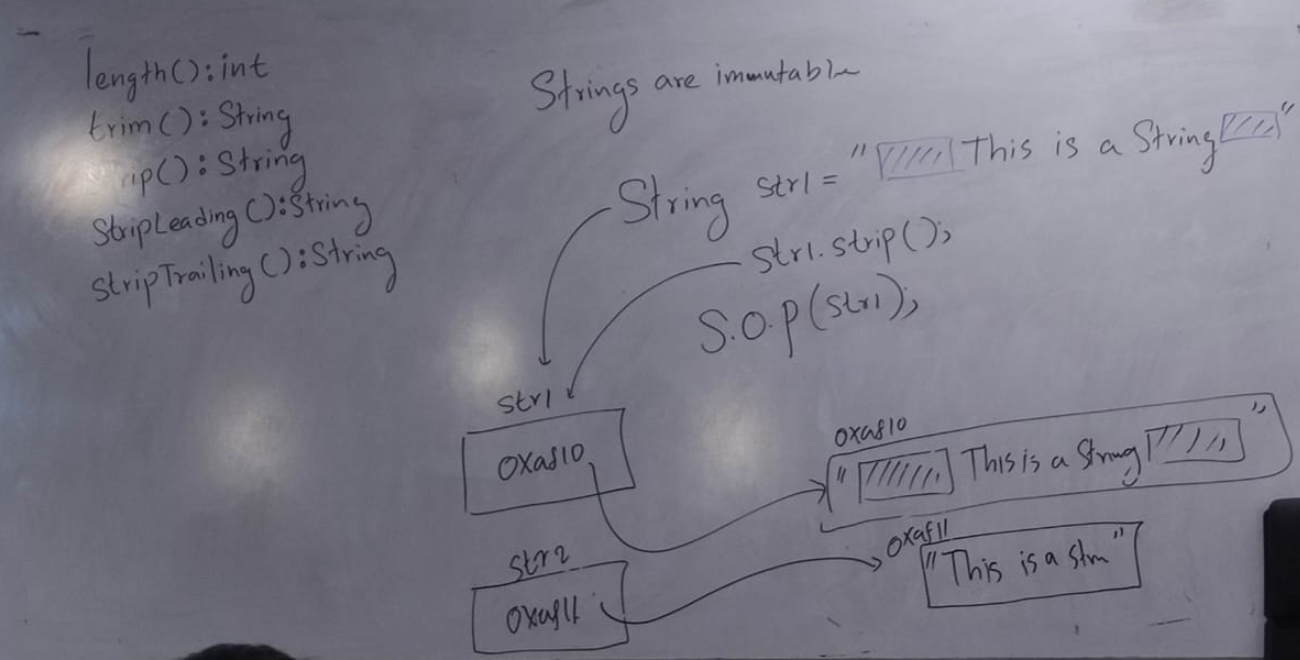 length():int
trim():String
ip():String
StripLeading():String
stripTrailing():String
Strings are immutable
String str1 = " This is a String "
str1.strip();
S.O.P(str1);
str1
0xa810
0xa810
" This is a String "
str2
0xaf11
0xaf11
"This is a Strn"